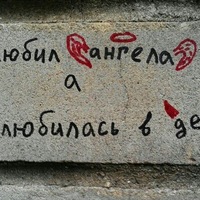 любил ангела
а
любилась в де